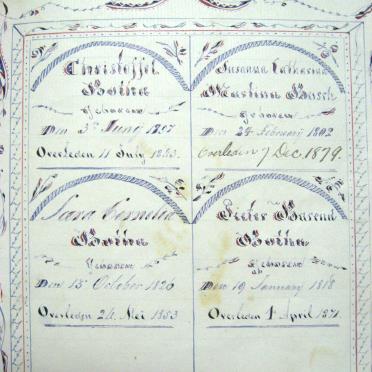 Christoffel
Botha
Geboren
Den 3e Juny 1797
Overleden 11 July 1883.
Susanna Catharina
Martina Busch
Geboren
Den 24 February 1802
Overleden 7 Dec. 1879.
Sara Cornelia
Botha
Geboren
Den 15 October 1820
Overleden 24 Mei 1853
Pieter Barend
Botha
Geboren
Den 19 January 1818
Overleden 1 April 1871.